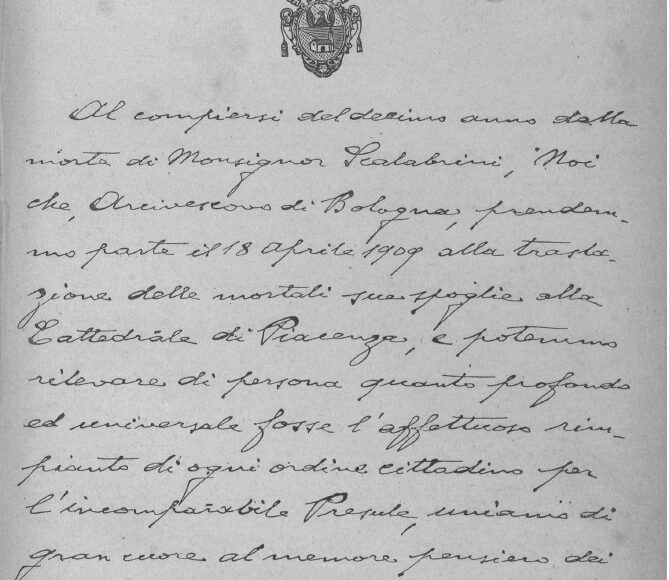 Al compiersi del decimo anno dalla
morte di Monsignor Scalabrini, Noi
che, Arcivescovo di Bologna, prendem-
mo parte il 18 Aprile 1909 alla trasla-
zione delle mortali sue spoglie alla
Cattedrale di Piacenza, e potemmo
rilevare di persona quanto profondo
ed universale fosse l'affettuoso rim-
pianto di ogni ordine cittadino per
l'incomparabile Presule, uniamo di
gran cuore al memore pensiero dei